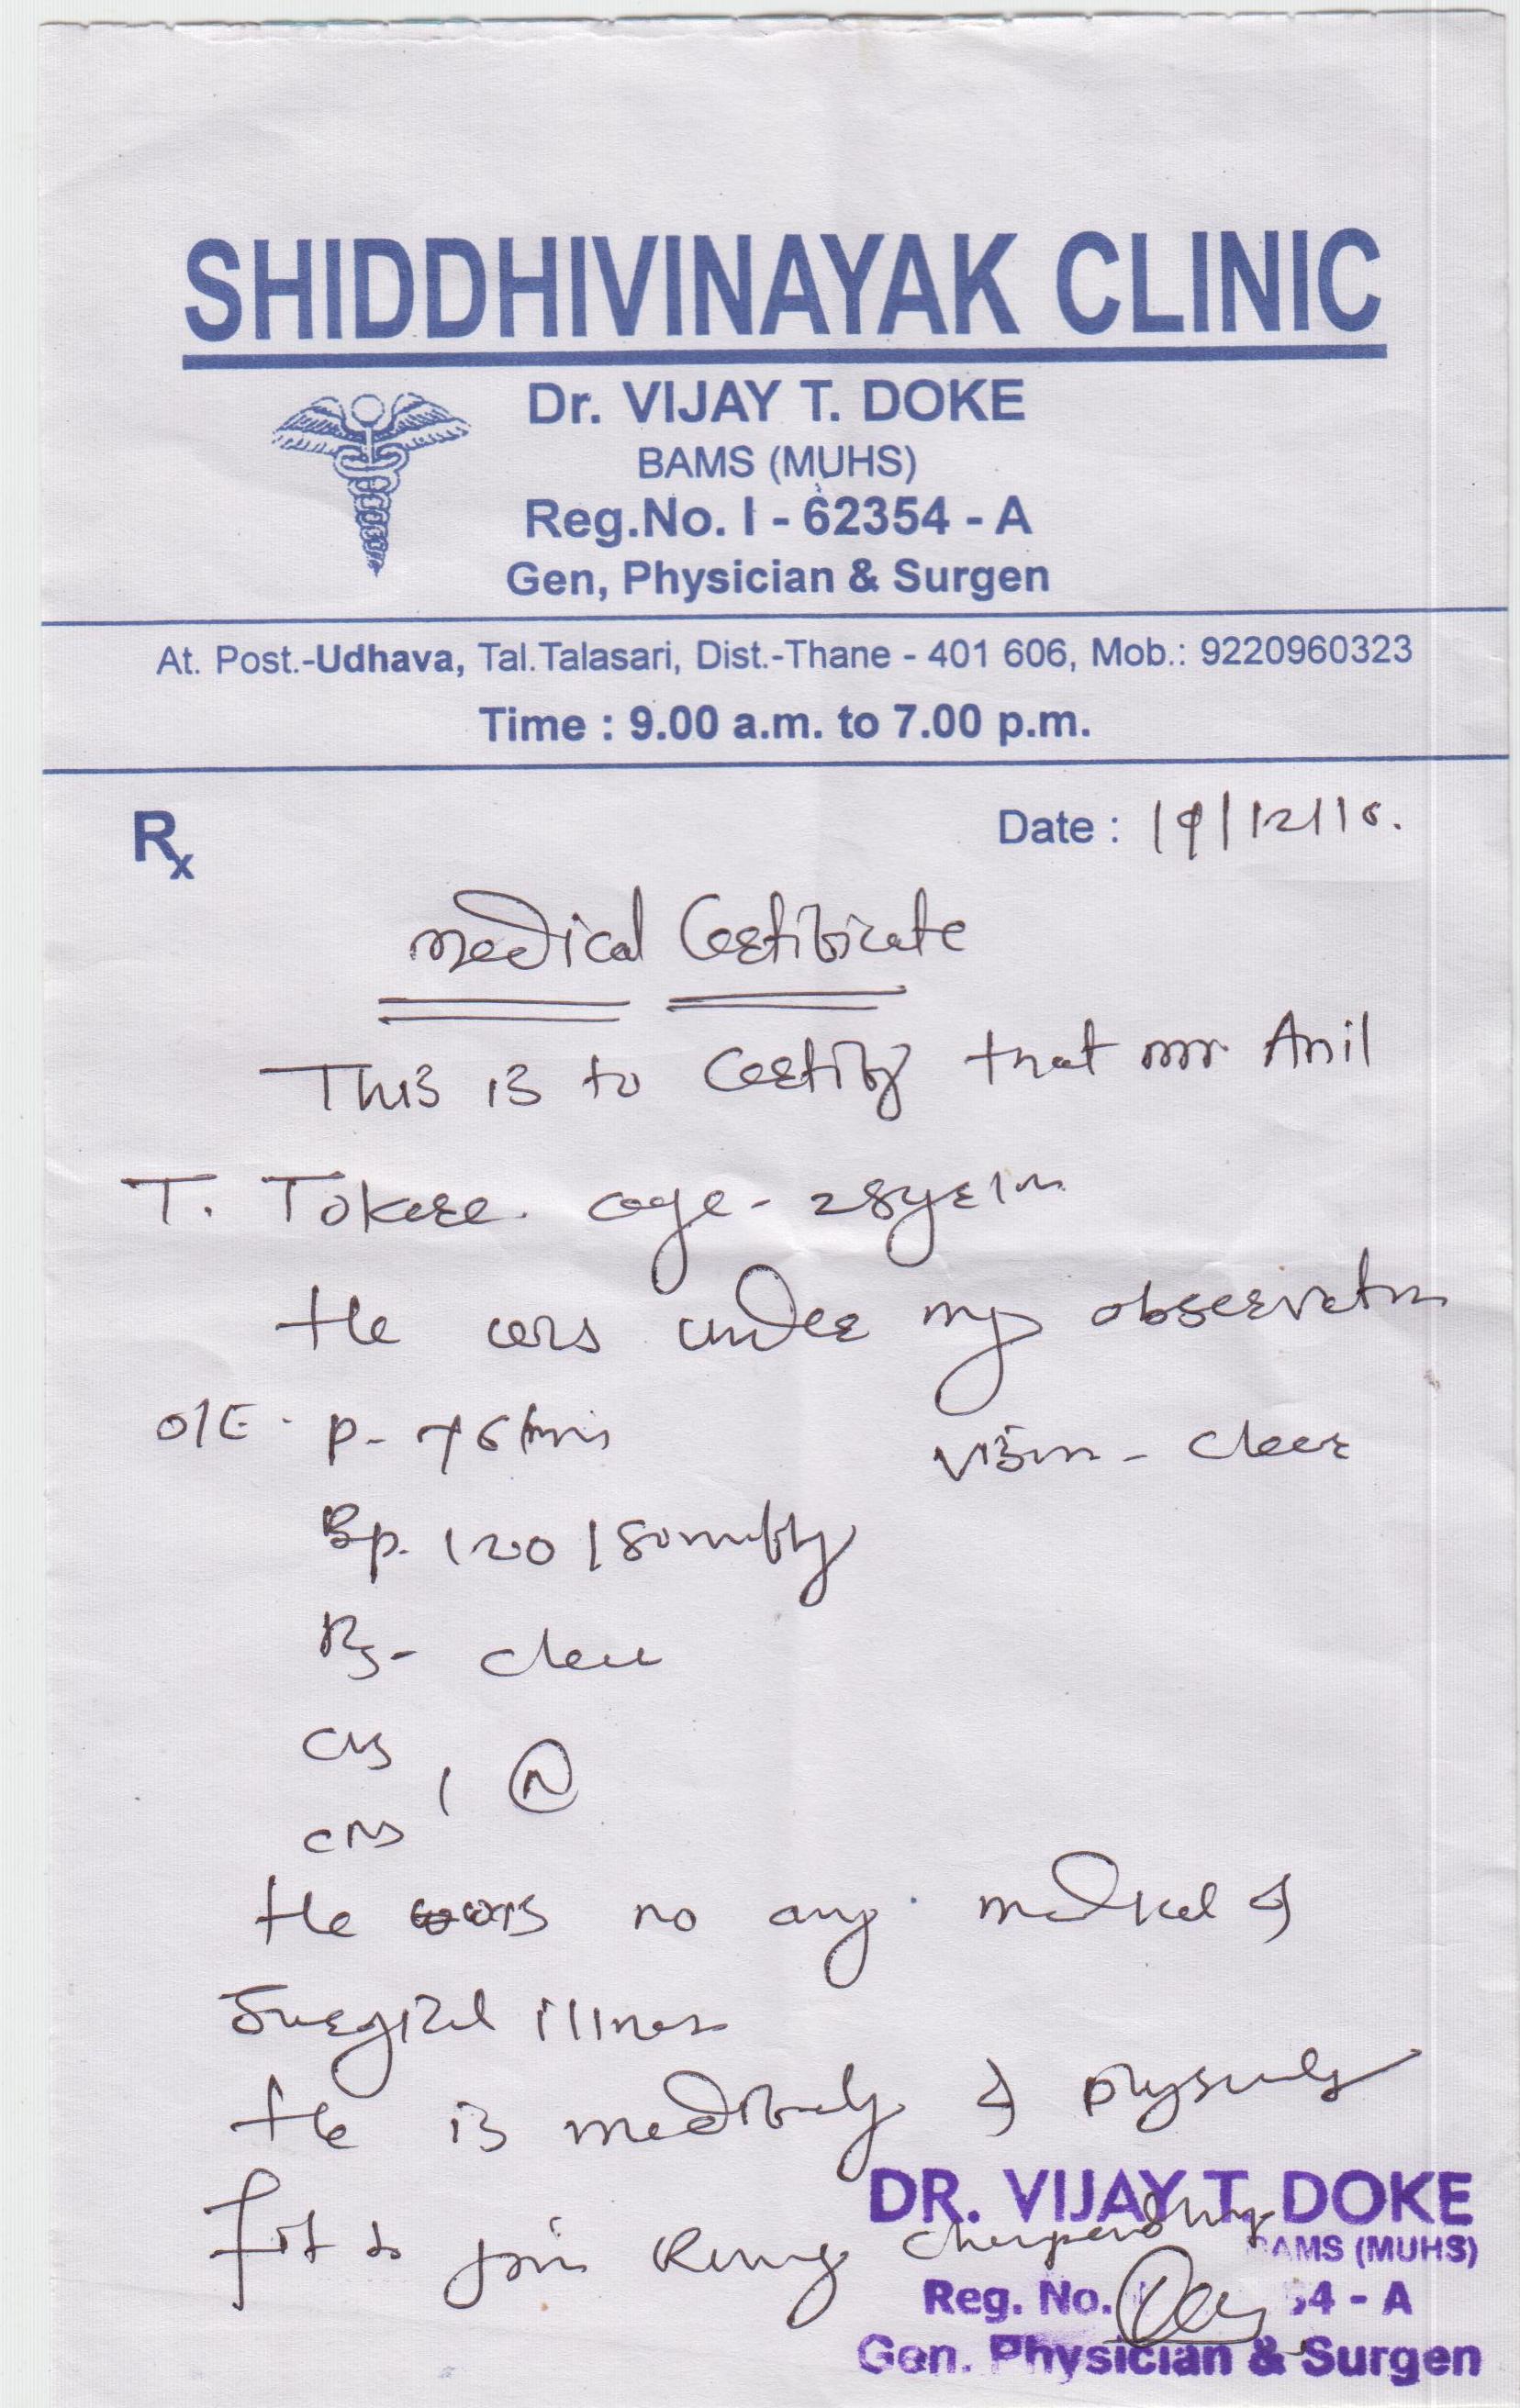 SHIDDHIVINAYAK CLINIC
Dr. VIJAY T. DOKE
BAMS (MUHS)
Reg.No. I - 62354 - A
Gen, Physician & Surgen
At. Post.-Udhava, Tal.Talasari, Dist.-Thane - 401 606, Mob.: 9220960323
Time : 9.00 a.m. to 7.00 p.m.
Rx
Date : 19/12/16.
Medical Certificate
This is to Certify that mr. Anil
T. Tokare. age - 28years
He was under my observation
O/E - P - 76/min Vision - Clear
Bp. 120/80mmHg
Rs - clear
CVS
, N
CNS
He no any medical &
Surgical illness
He is medically & physically
Fit to join
DR. VIJAY T. DOKE
BAMS (MUHS)
Reg. No. 54 - A
Gen. Physician & Surgen